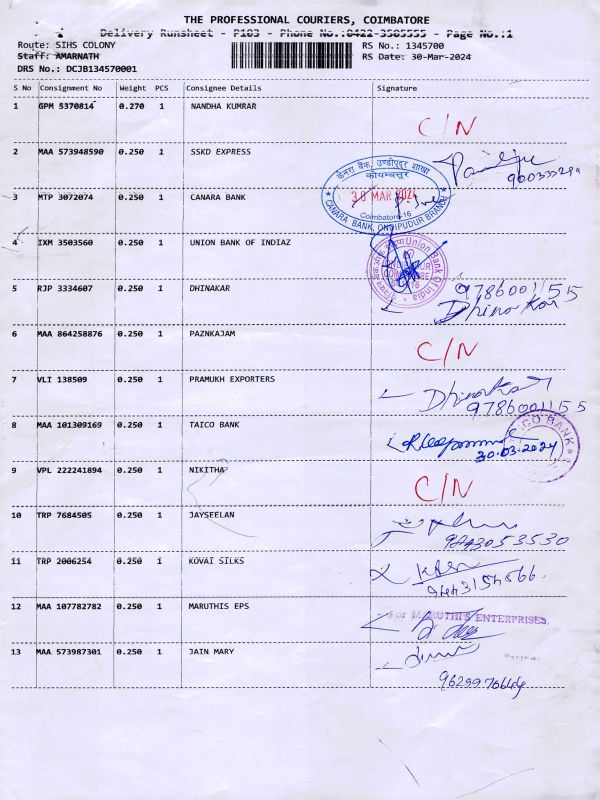 THE PROFESSIONAL COURIERS, COIMBATORE
Delivery Runsheet - P103 - Phone No.:0422-3505555 - Page No.:1
Route: SIHS COLONY RS No.: 1345700
Staff: AMARNATH RS Date: 30-Mar-2024
DRS No.: DCJB134570001
S No Consignment No Weight PCS Consignee Details Signature
1 GPM 5370814 0.270 1 NANDHA KUMRAR C/N
2 MAA 573948590 0.250 1 SSKD EXPRESS
3 MTP 3072074 0.250 1 CANARA BANK
केनरा बैंक, उण्डीपुदूर शाखा
कोयम्बत्तूर
30 MAR 2024
Coimbatore-16
CANARA BANK, ONDIPUDUR BRANCH
4 IXM 3503560 0.250 1 UNION BANK OF INDIAZ
Union Bank Of India
5 RJP 3334607 0.250 1 DHINAKAR 9786001155
Dhinakar
6 MAA 864258876 0.250 1 PAZNKAJAM C/N
7 VLI 138509 0.250 1 PRAMUKH EXPORTERS Dhinakar
9786001155
8 MAA 101309169 0.250 1 TAICO BANK
30.03.2024
TAICO BANK
9 VPL 222241894 0.250 1 NIKITHA C/N
10 TRP 7684505 0.250 1 JAYSEELAN
9843053530
11 TRP 2006254 0.250 1 KOVAI SILKS
12 MAA 107782782 0.250 1 MARUTHIS EPS For MARUTHIS ENTERPRISES,
13 MAA 573987301 0.250 1 JAIN MARY